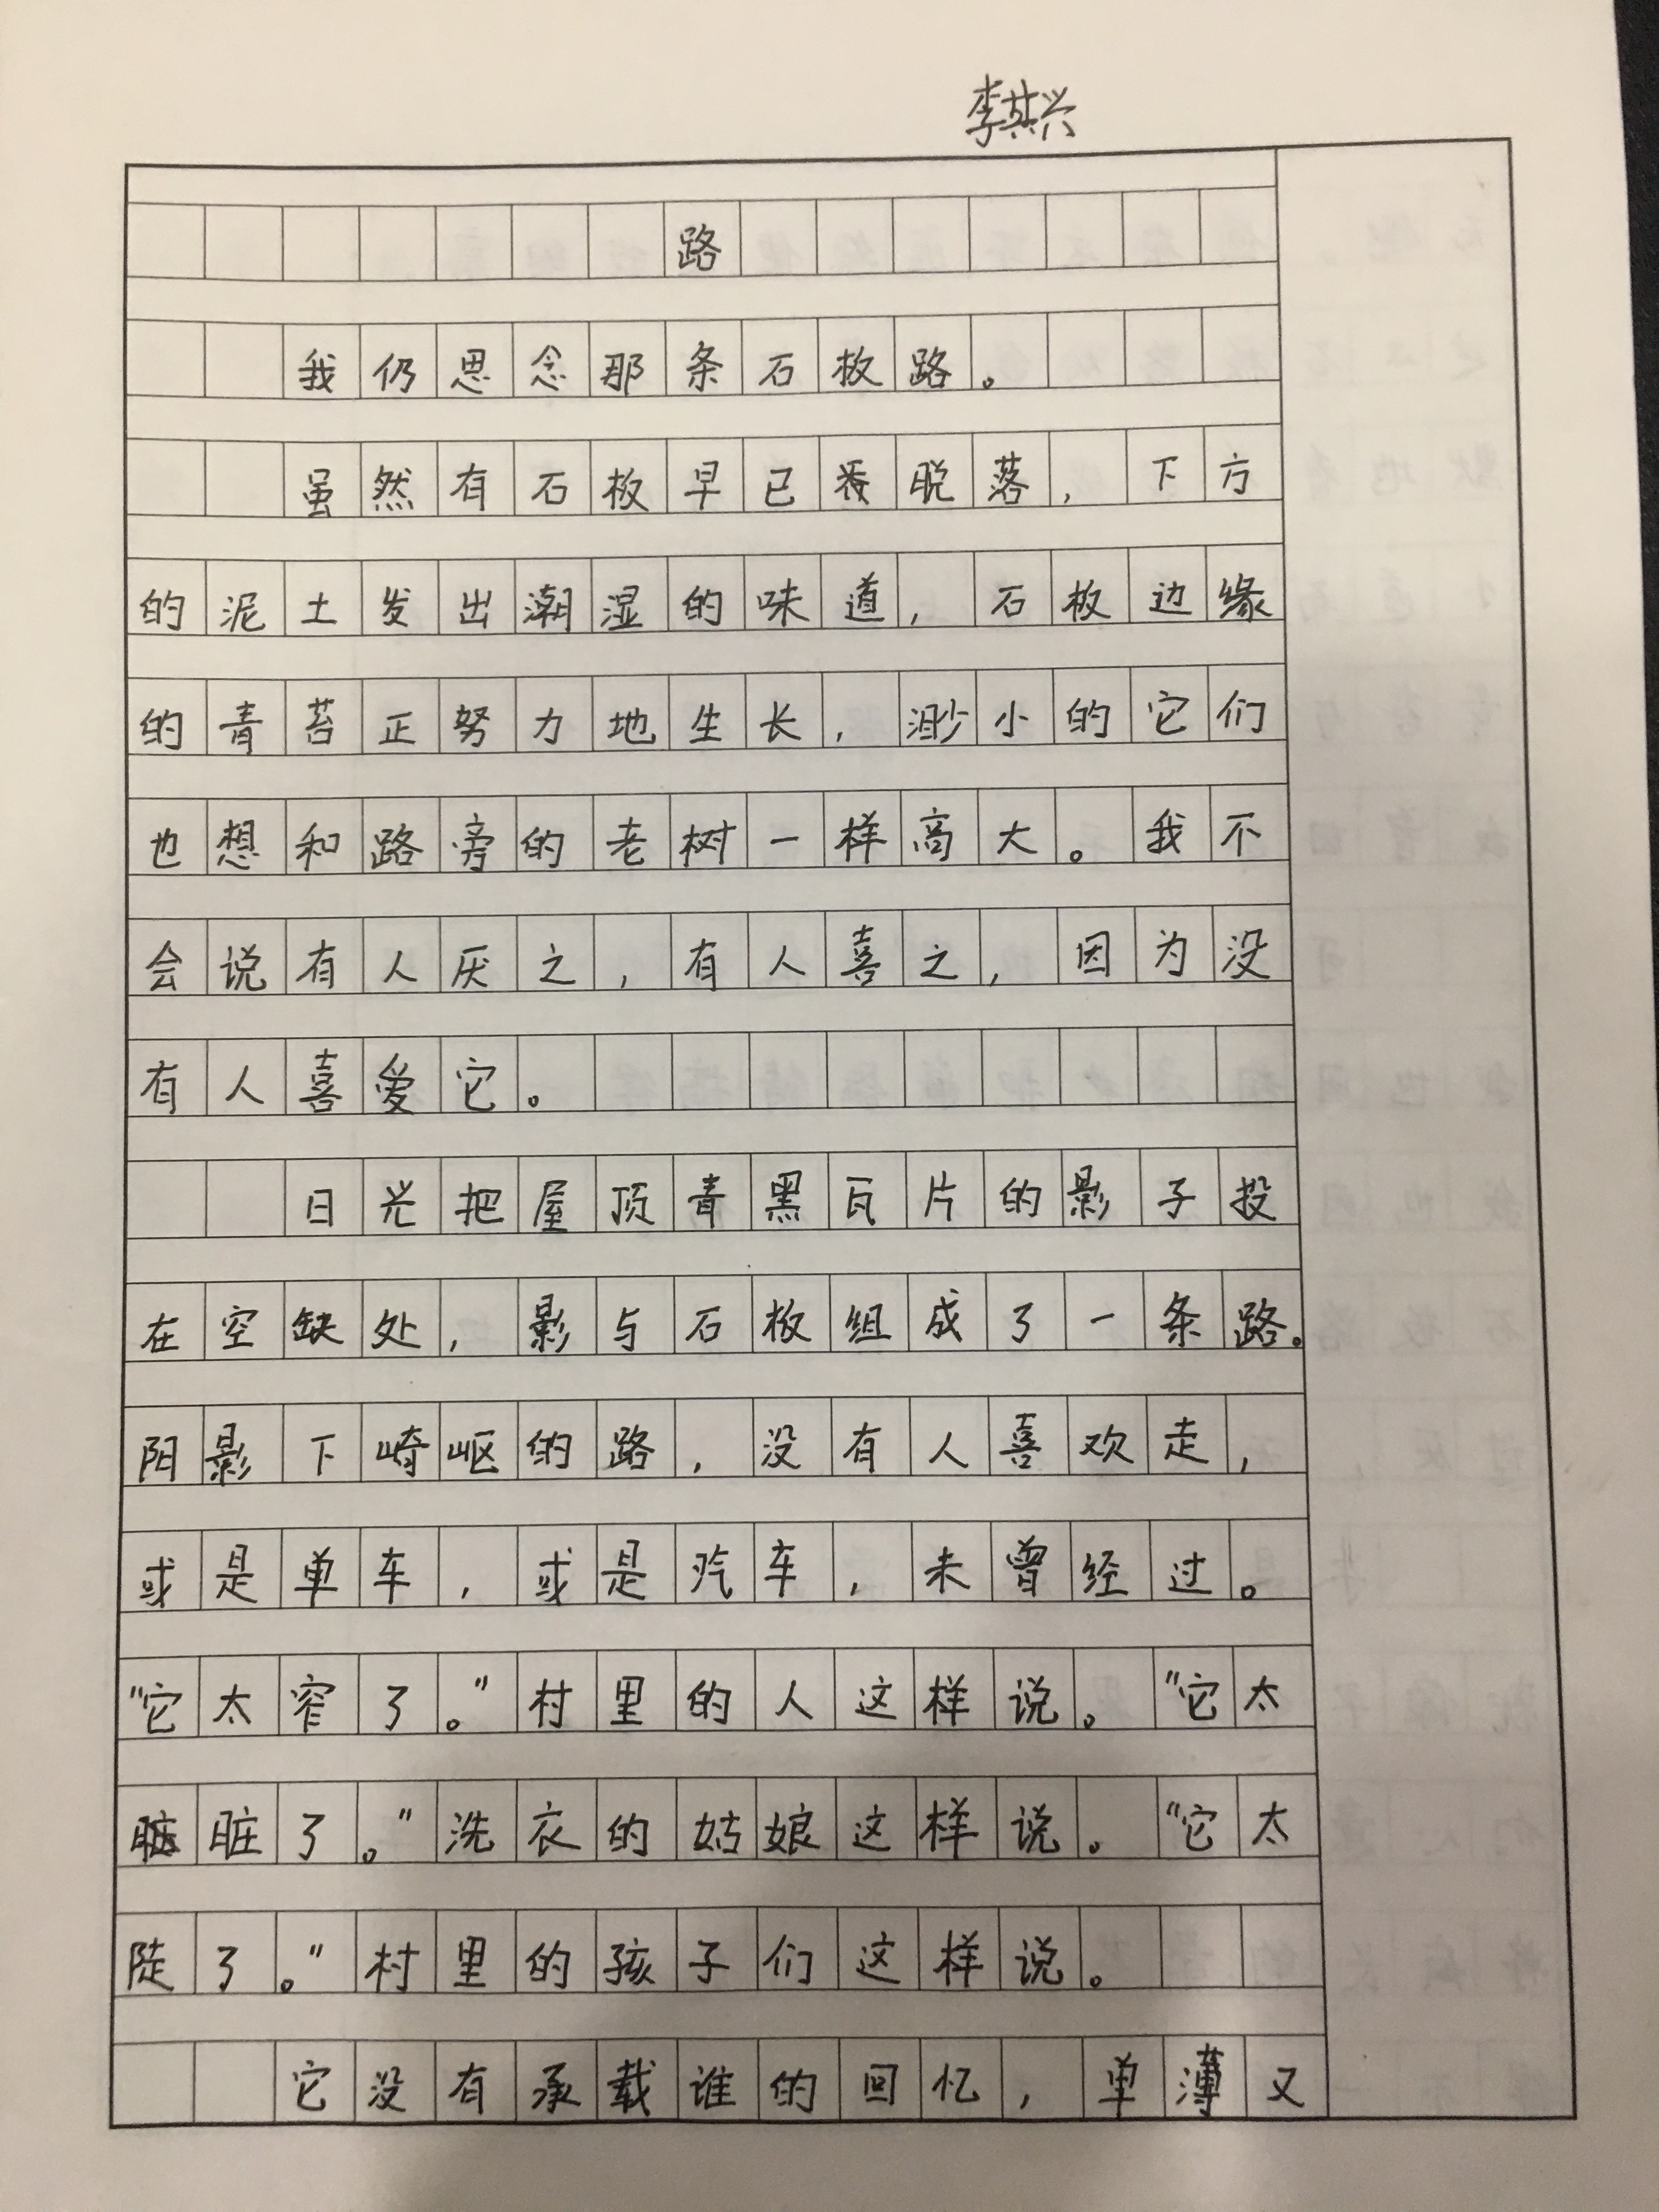 李其兴
路
我仍思念那条石板路。
虽然有石板早已脱落，下方
的泥土发出潮湿的味道，石板边缘
的青苔正努力地生长，渺小的它们
也想和路旁的老树一样高大。我不
会说有人厌之，有人喜之，因为没
有人喜爱它。
日光把屋顶青黑瓦片的影子投
在空缺处，影与石板组成了一条路。
阳影下崎岖的路，没有人喜欢走，
或是单车，或是汽车，未曾经过。
“它太窄了。”村里的人这样说。“它太
脏了。”洗衣的姑娘这样说。“它太
陡了。”村里的孩子们这样说。
它没有承载谁的回忆，单薄又